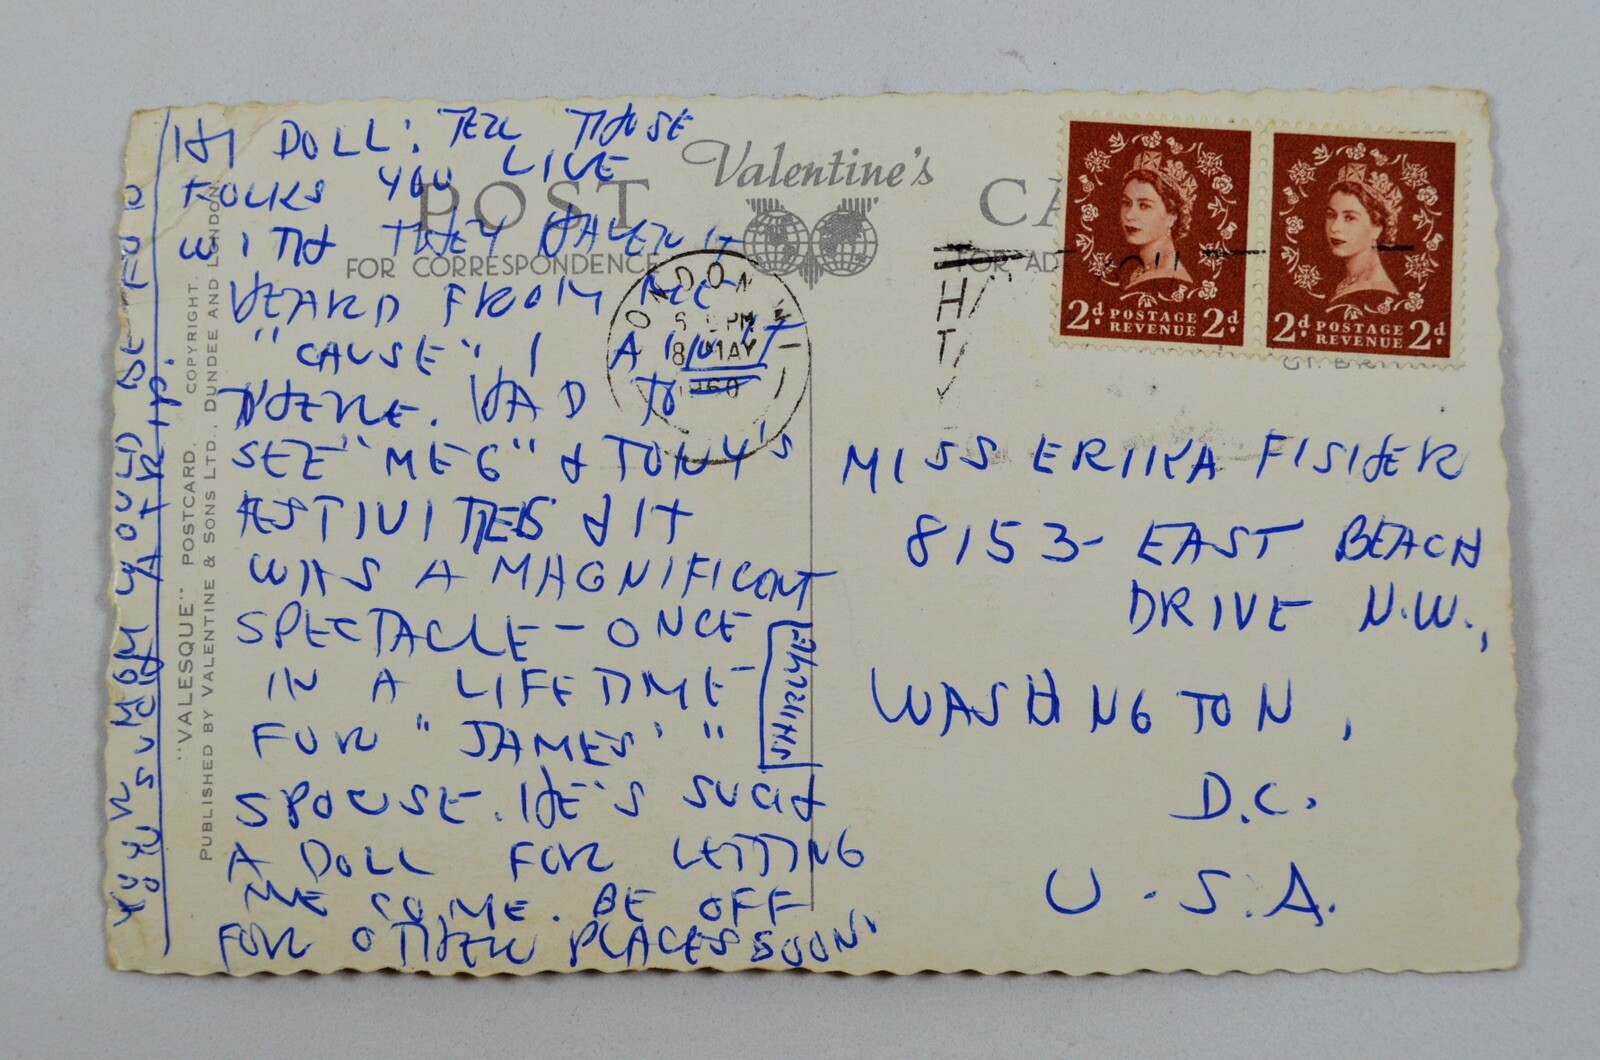 HI DOLL: TELL THOSE
FOLKS YOU LIVE
WITH THEY HAVEN'T
HEARD FROM ME
"CAUSE", I A JUST
THERE. HAD TO
SEE "MEG" & TONY'S
FESTIVITIES & IT
WAS A MAGNIFICENT
SPECTACLE - ONCE
IN A LIFETIME
FOR "JAMES'"
SPOUSE. HE'S SUCH
A DOLL FOR LETTING
ME COME. BE OFF
FOR OTHER PLACES SOON!
YOUR MOM WOULD BE FOR
SUCH A TRIP.
SHIRLYE
POST CA
Valentine's
FOR CORRESPONDENCE
FOR AD
"VALESQUE" POSTCARD. COPYRIGHT.
PUBLISHED BY VALENTINE & SONS LTD., DUNDEE AND LONDON
LONDON
PM
8 MAY
1960
2d POSTAGE REVENUE 2d
2d POSTAGE REVENUE 2d
MISS ERIKA FISHER
8153- EAST BEACH
DRIVE N.W.,
WASHINGTON,
D.C.
U.S.A.